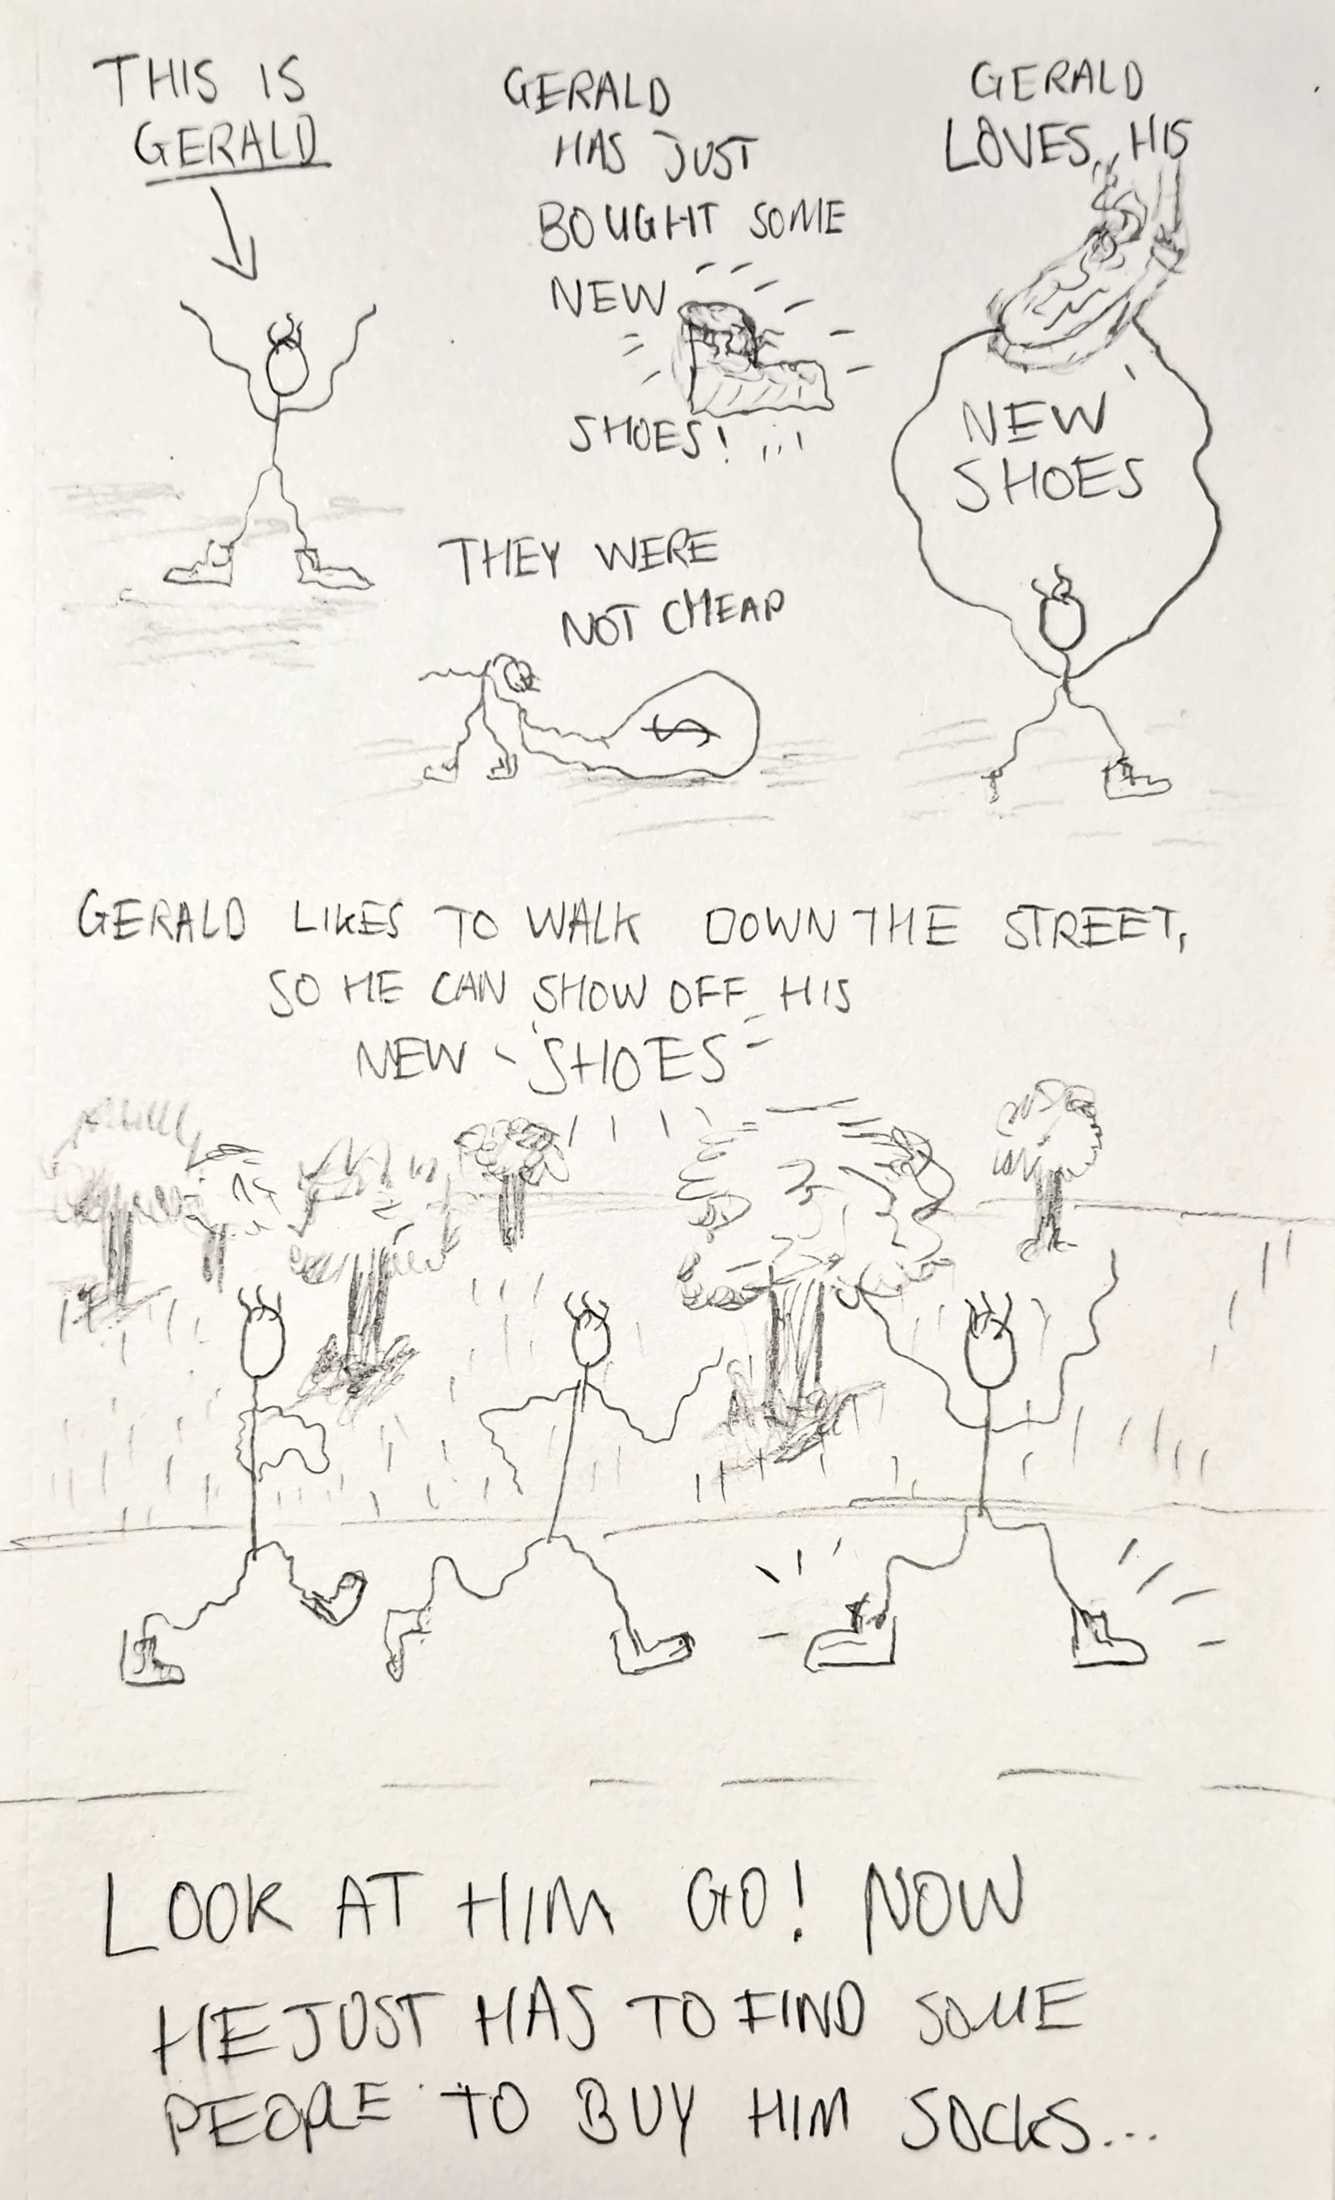 THIS IS
GERALD
GERALD
HAS JUST
BOUGHT SOME
NEW
SHOES!
THEY WERE
NOT CHEAP
$
GERALD
LOVES HIS
NEW
SHOES
GERALD LIKES TO WALK DOWN THE STREET,
SO HE CAN SHOW OFF HIS
NEW SHOES
LOOK AT HIM GO! NOW
HE JUST HAS TO FIND SOME
PEOPLE TO BUY HIM SOCKS...